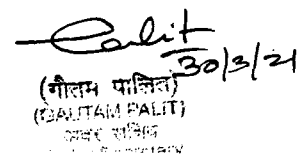 Palit
30/3/21
(गौतम पालित)
(GAUTAM PALIT)
अवर सचिव